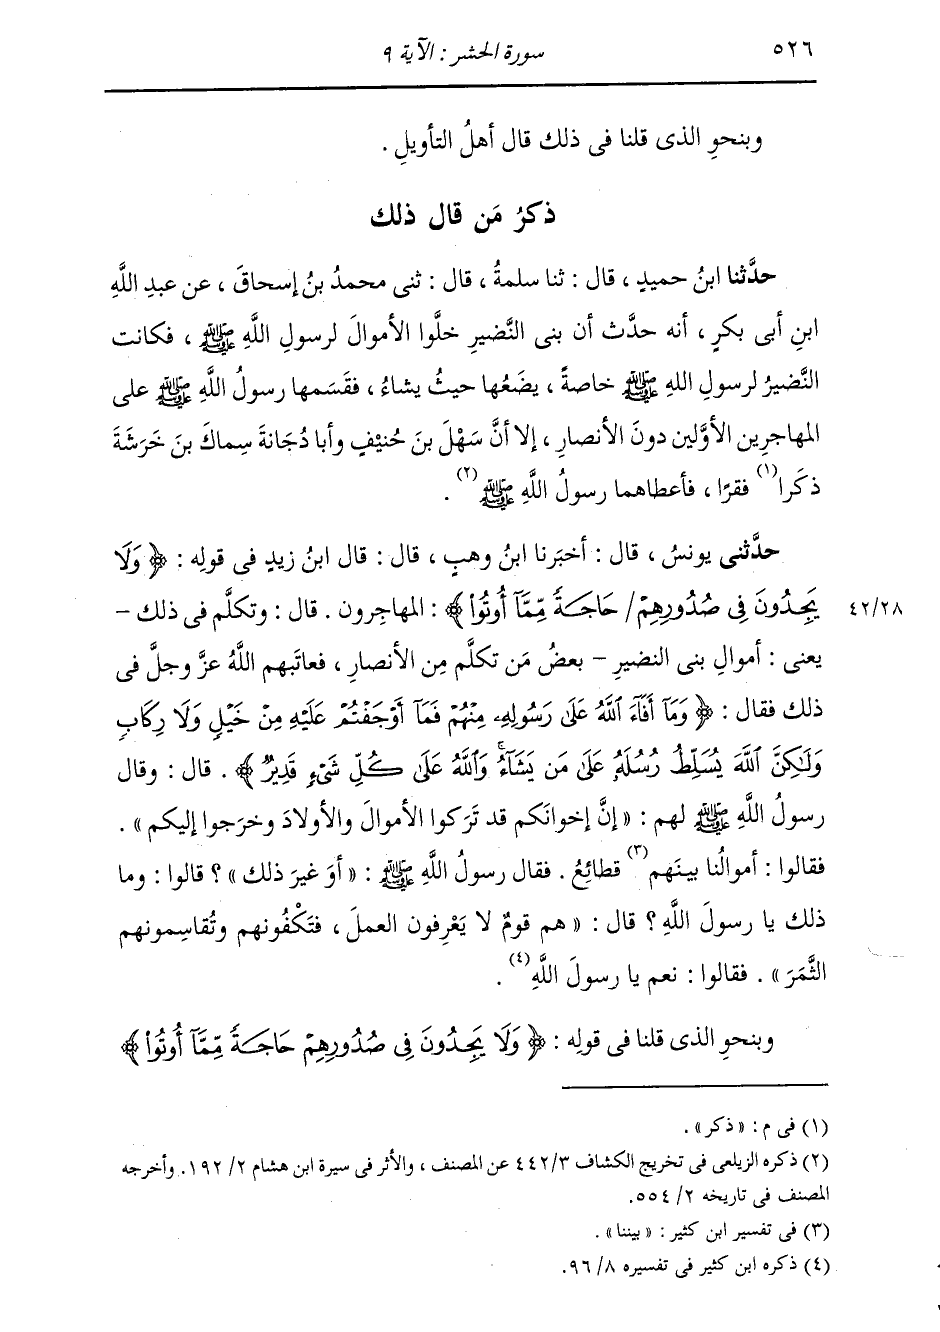 ٥٢٦ سورة الحشر : الآية ٩
وبنحوِ الذى قلنا فى ذلك قال أهلُ التأويلِ .
ذكرُ مَن قال ذلك
حدَّثنا ابنُ حميدٍ ، قال : ثنا سلمةُ ، قال : ثنى محمدُ بنُ إسحاقَ ، عن عبدِ اللَّهِ
ابنِ أبى بكرٍ ، أنه حدَّث أن بنى النَّضيرِ خلَّوا الأموالَ لرسولِ اللَّهِ ﷺ ، فكانت
النَّضيرُ لرسولِ اللهِ ﷺ خاصةً ، يضَعُها حيثُ يشاءُ ، فقَسَمها رسولُ اللَّهِ ﷺ على
المهاجرِين الأوَّلين دونَ الأنصارِ ، إلا أنَّ سَهْلَ بنَ حُنيْفٍ وأبا دُجَانةَ سِماكَ بنَ خَرَشَةَ
ذكَرا(١) فقرًا ، فأعطاهما رسولُ اللَّهِ ﷺ(٢) .
حدَّثنى يونسُ ، قال : أخبَرنا ابنُ وهبٍ ، قال : قال ابنُ زيدٍ فى قولِه : ﴿ وَلَا
يَجِدُونَ فِى صُدُورِهِمْ / حَاجَةً مِّمَّآ أُوتُوا۟ ﴾ : المهاجرون . قال : وتكلَّم فى ذلك – ٤٢/٢٨
يعنى : أموالِ بنى النضيرِ – بعضُ مَن تكلَّم مِن الأنصارِ ، فعاتَبهم اللَّهُ عزَّ وجلَّ فى
ذلك فقال : ﴿ وَمَآ أَفَآءَ ٱللَّهُ عَلَىٰ رَسُولِهِۦ مِنْهُمْ فَمَآ أَوْجَفْتُمْ عَلَيْهِ مِنْ خَيْلٍ وَلَا رِكَابٍ
وَلَٰكِنَّ ٱللَّهَ يُسَلِّطُ رُسُلَهُۥ عَلَىٰ مَن يَشَآءُ ۚ وَٱللَّهُ عَلَىٰ كُلِّ شَىْءٍ قَدِيرٌ ﴾ . قال : وقال
رسولُ اللَّهِ ﷺ لهم : « إنَّ إخوانَكم قد تَرَكوا الأموالَ والأولادَ وخرَجوا إليكم » .
فقالوا : أموالُنا بينَهم(٣) قطائِعُ . فقال رسولُ اللَّهِ ﷺ : « أوَ غيرَ ذلك » ؟ قالوا : وما
ذلك يا رسولَ اللَّهِ ؟ قال : « هم قومٌ لا يَعْرِفون العملَ ، فتَكْفُونهم وتُقاسِمونهم
الثَّمَرَ » . فقالوا : نعم يا رسولَ اللَّهِ(٤) .
وبنحوِ الذى قلنا فى قولِه : ﴿ وَلَا يَجِدُونَ فِى صُدُورِهِمْ حَاجَةً مِّمَّآ أُوتُوا۟ ﴾
(١) فى م : « ذكر » .
(٢) ذكره الزيلعى فى تخريج الكشاف ٤٤٢/٣ عن المصنف ، والأثر فى سيرة ابن هشام ٢/ ١٩٢. وأخرجه
المصنف فى تاريخه ٢/ ٥٥٤.
(٣) فى تفسير ابن كثير : « بيننا » .
(٤) ذكره ابن كثير فى تفسيره ٨/ ٩٦.